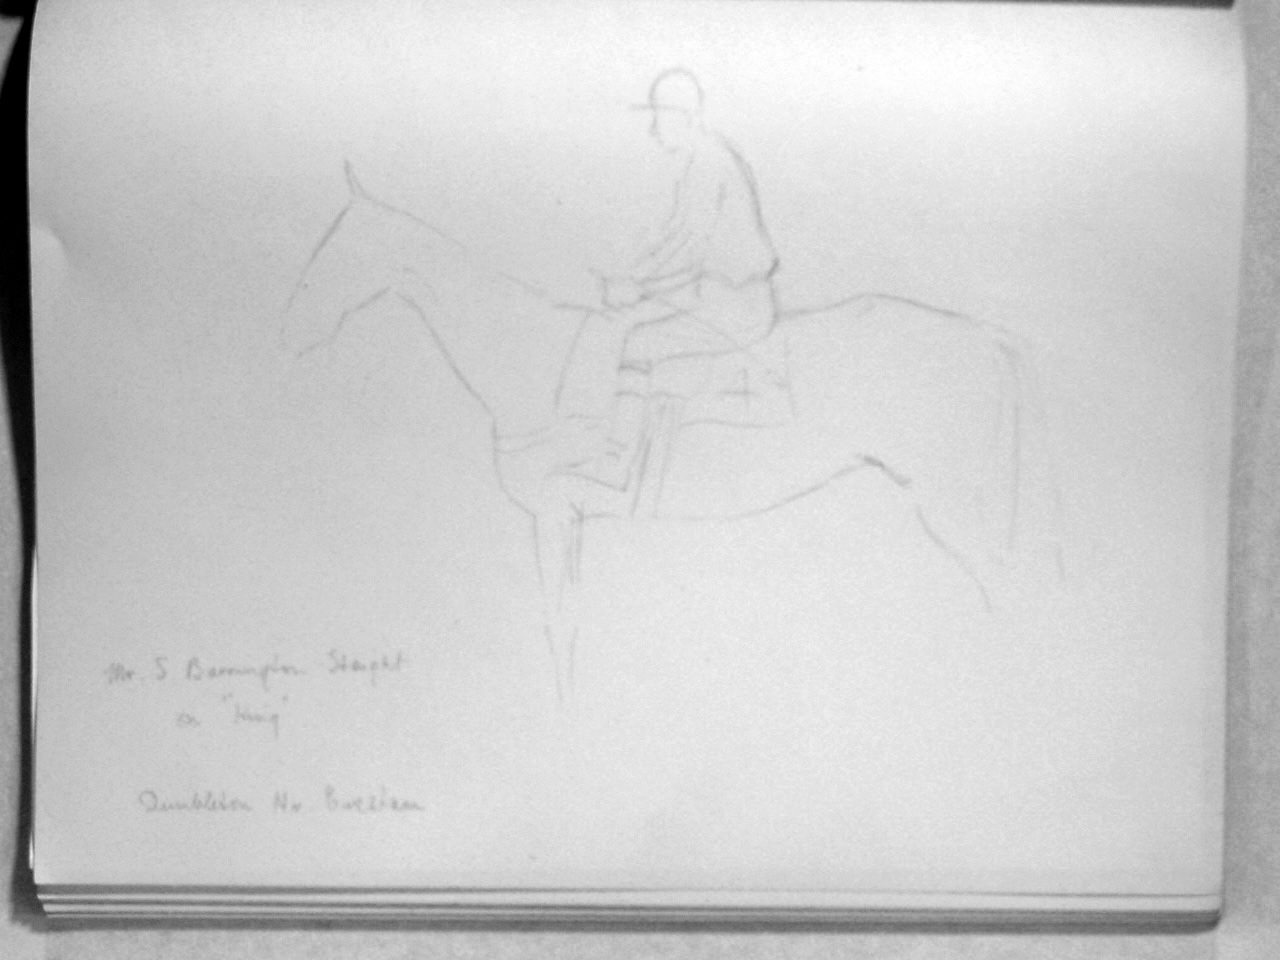 Mr. S Barrington Staight
on "King"
Dumbleton Nr. Evesham